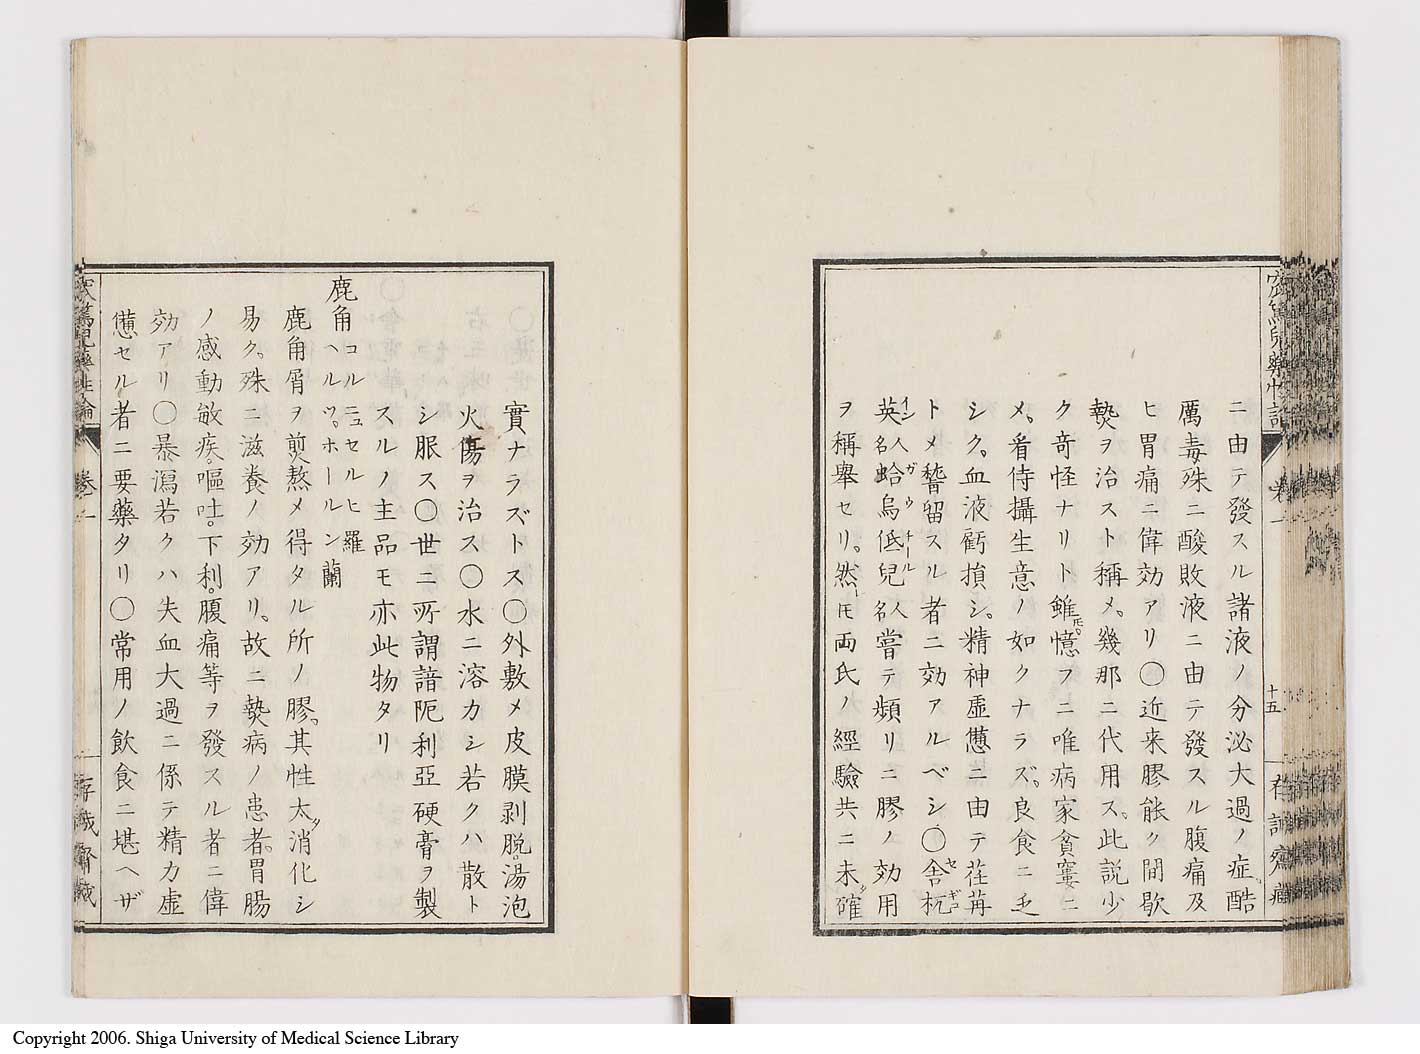 窊篤兒藥性論
卷一
十五
存誠齋藏
ニ由テ發スル諸液ノ分泌大過ノ症酷
厲毒殊ニ酸敗液ニ由テ發スル腹痛及
ヒ胃痛ニ偉効アリ〇近来膠能ク間歇
熱ヲ治スト稱メ。幾那ニ代用ス。此説少
ク奇怪ナリト雖モ。憶フニ唯病家貧窶ニ
メ。看侍攝生意ノ如クナラズ。良食ニ乏
シク。血液虧損シ。精神虚憊ニ由テ荏苒
トメ稽留スル者ニ効アルベシ〇舎杭
セギュイン人名蛤烏低兒ガウチール人名嘗テ頻リニ膠ノ効用
ヲ稱舉セリ。然ㇾ𪜈両氏ノ經驗共ニ未タ確
實ナラズトス〇外敷メ皮膜剥脱。湯泡
火傷ヲ治ス〇水ニ溶カシ若クハ散ト
シ服ス〇世ニ所謂諳阨利亞硬膏ヲ製
スルノ主品モ亦此物タリ
鹿角コルニュセルヒ羅 ヘルツ。ホールン蘭
鹿角屑ヲ煎熬メ得タル所ノ膠。其性太タ消化シ
易ク。殊ニ滋養ノ効アリ。故ニ熱病ノ患者。胃腸
ノ感動敏疾。嘔吐。下利。腹痛等ヲ發スル者ニ偉
効アリ〇暴瀉若クハ失血大過ニ係テ精力虚
憊セル者ニ要藥タリ〇常用ノ飲食ニ堪ヘザ
窊篤兒藥性論
卷一
存誠齋藏
Copyright 2006. Shiga University of Medical Science Library